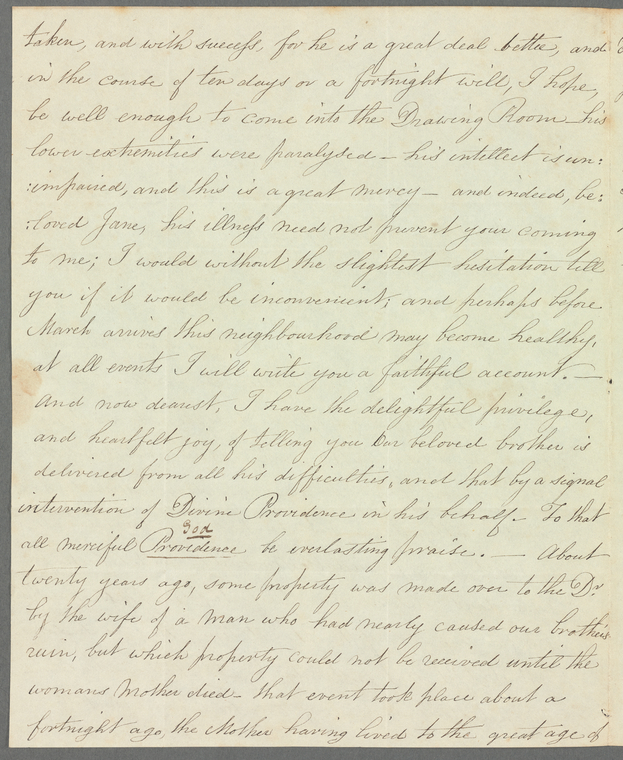 taken, and with success, for he is a great deal better, and
in the course of ten days or a fortnight will, I hope,
be well enough to come into the Drawing Room – his
lower extremities were paralysed – his intellect is un:
:impaired, and this is a great mercy – and indeed, be:
:loved Jane, his illness need not prevent your coming
to me; I would without the slightest hesitation tell
you if it would be inconvenient; and perhaps before
March arrives this neighbourhood may become healthy,
at all events I will write you a faithful account. —
And now dearest, I have the delightful privilege,
and heartfelt joy, of telling you our beloved brother is
delivered from all his difficulties, and that by a signal
intervention of Divine Providence in his behalf – To that
God
all merciful Providence be everlasting praise. — About
twenty years ago, some property was made over to the Dr.
by the wife of a man who had nearly caused our brother's
ruin, but which property could not be received until the
womans Mother died – that event took place about a
fortnight ago, the Mother having lived to the great age of